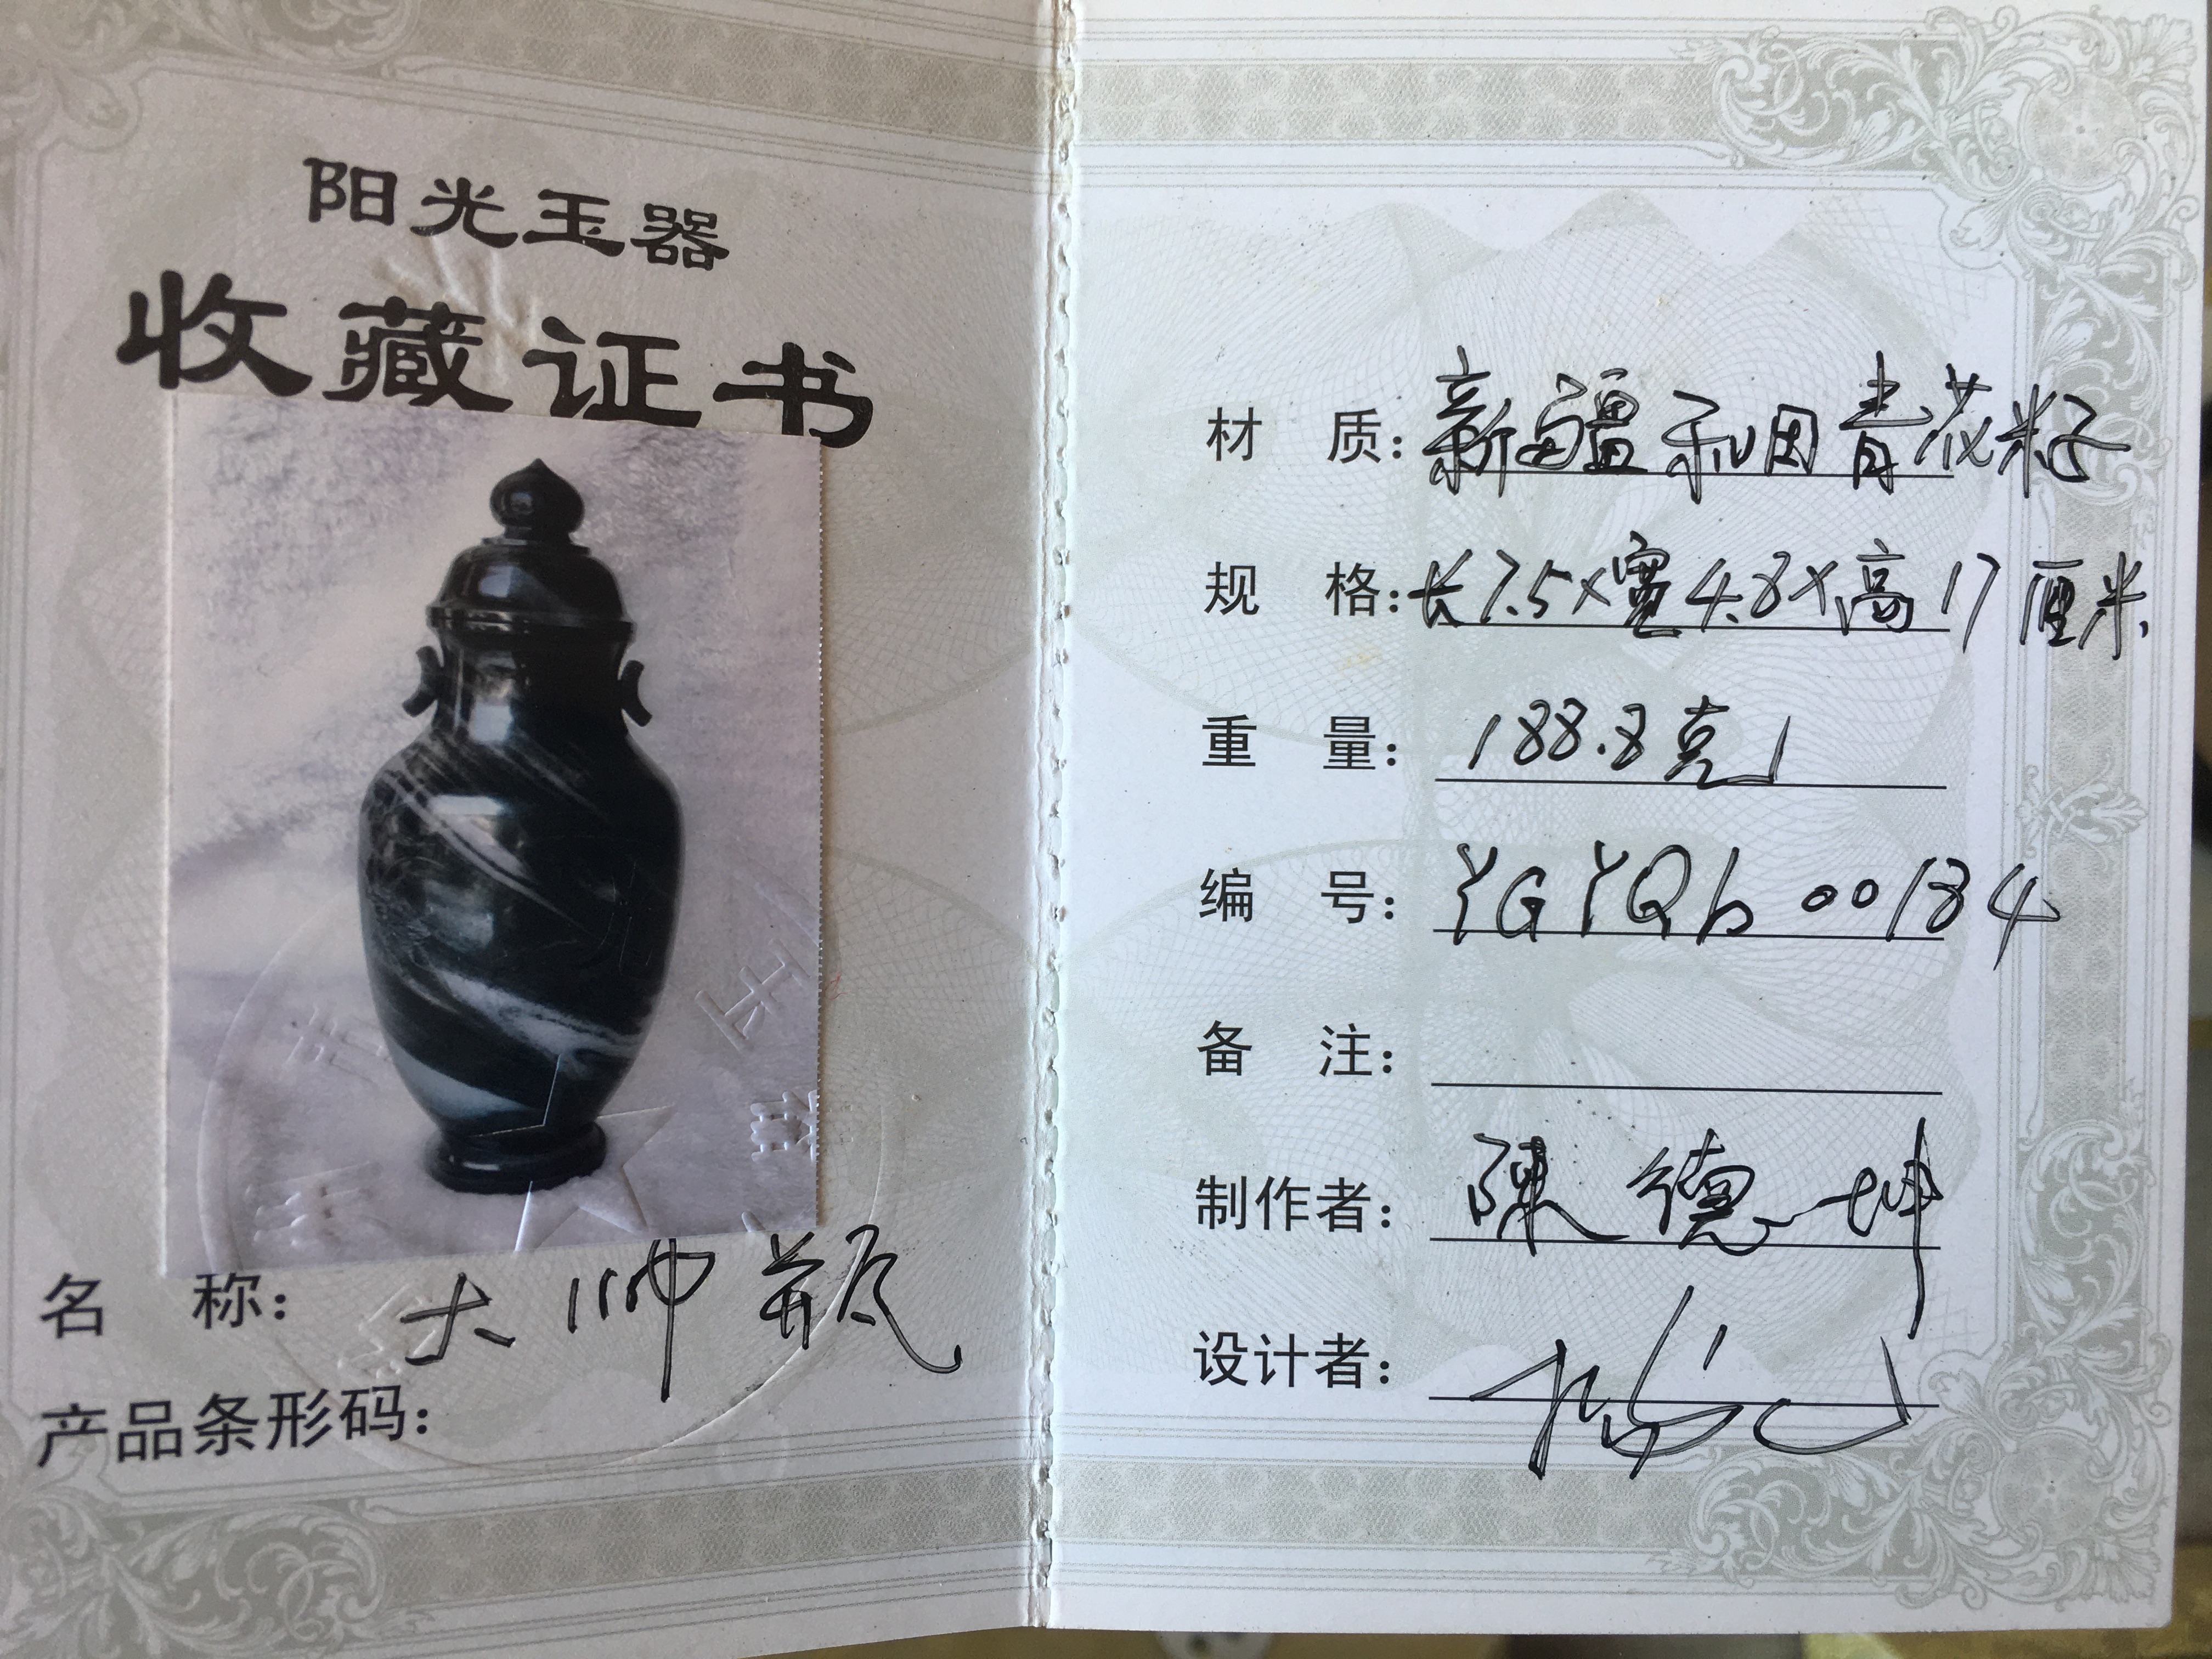 阳光玉器
收藏证书
名 称：大帅瓶
产品条形码：
材 质：新疆和田青花籽
规 格：长7.5×宽4.8×高17厘米
重 量：188.8克
编 号：YGYQh00184
备 注：
制作者：陳德坤
设计者：